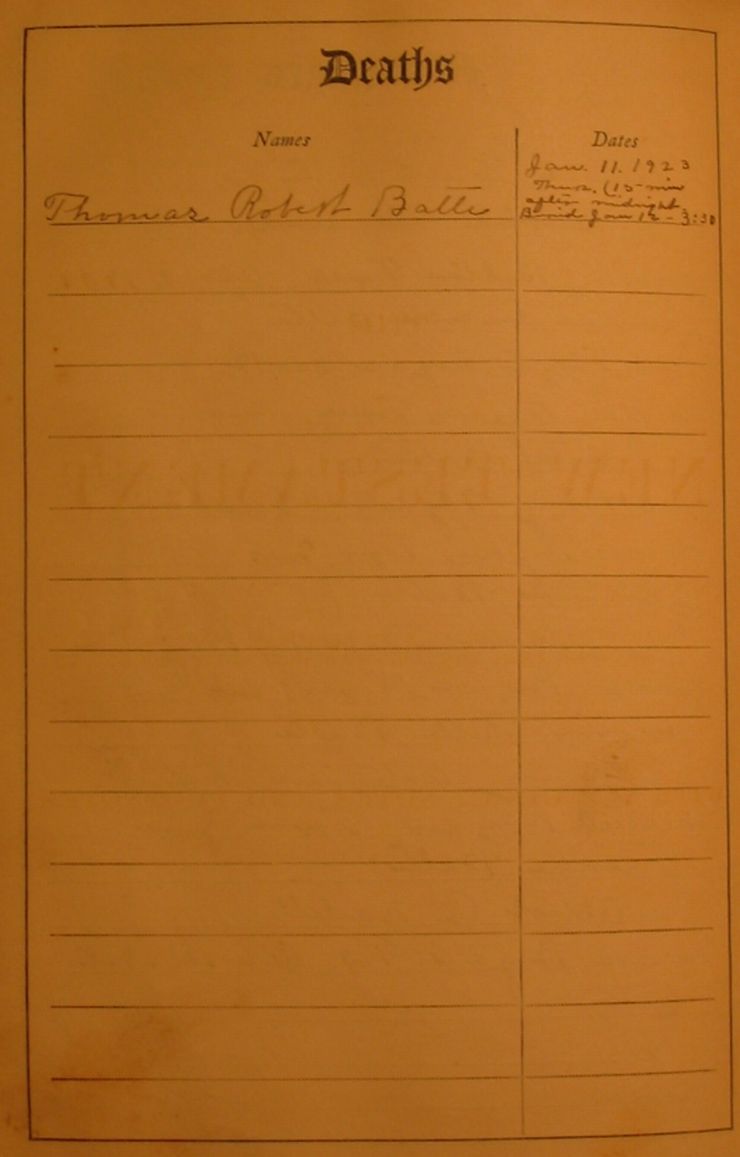 Deaths
Names
Dates
Thomas Robert Batte
Jan. 11. 1923
Thurs. (15 min
after midnight
Buried Jan 12 - 3:30
NEW TESTAMENT